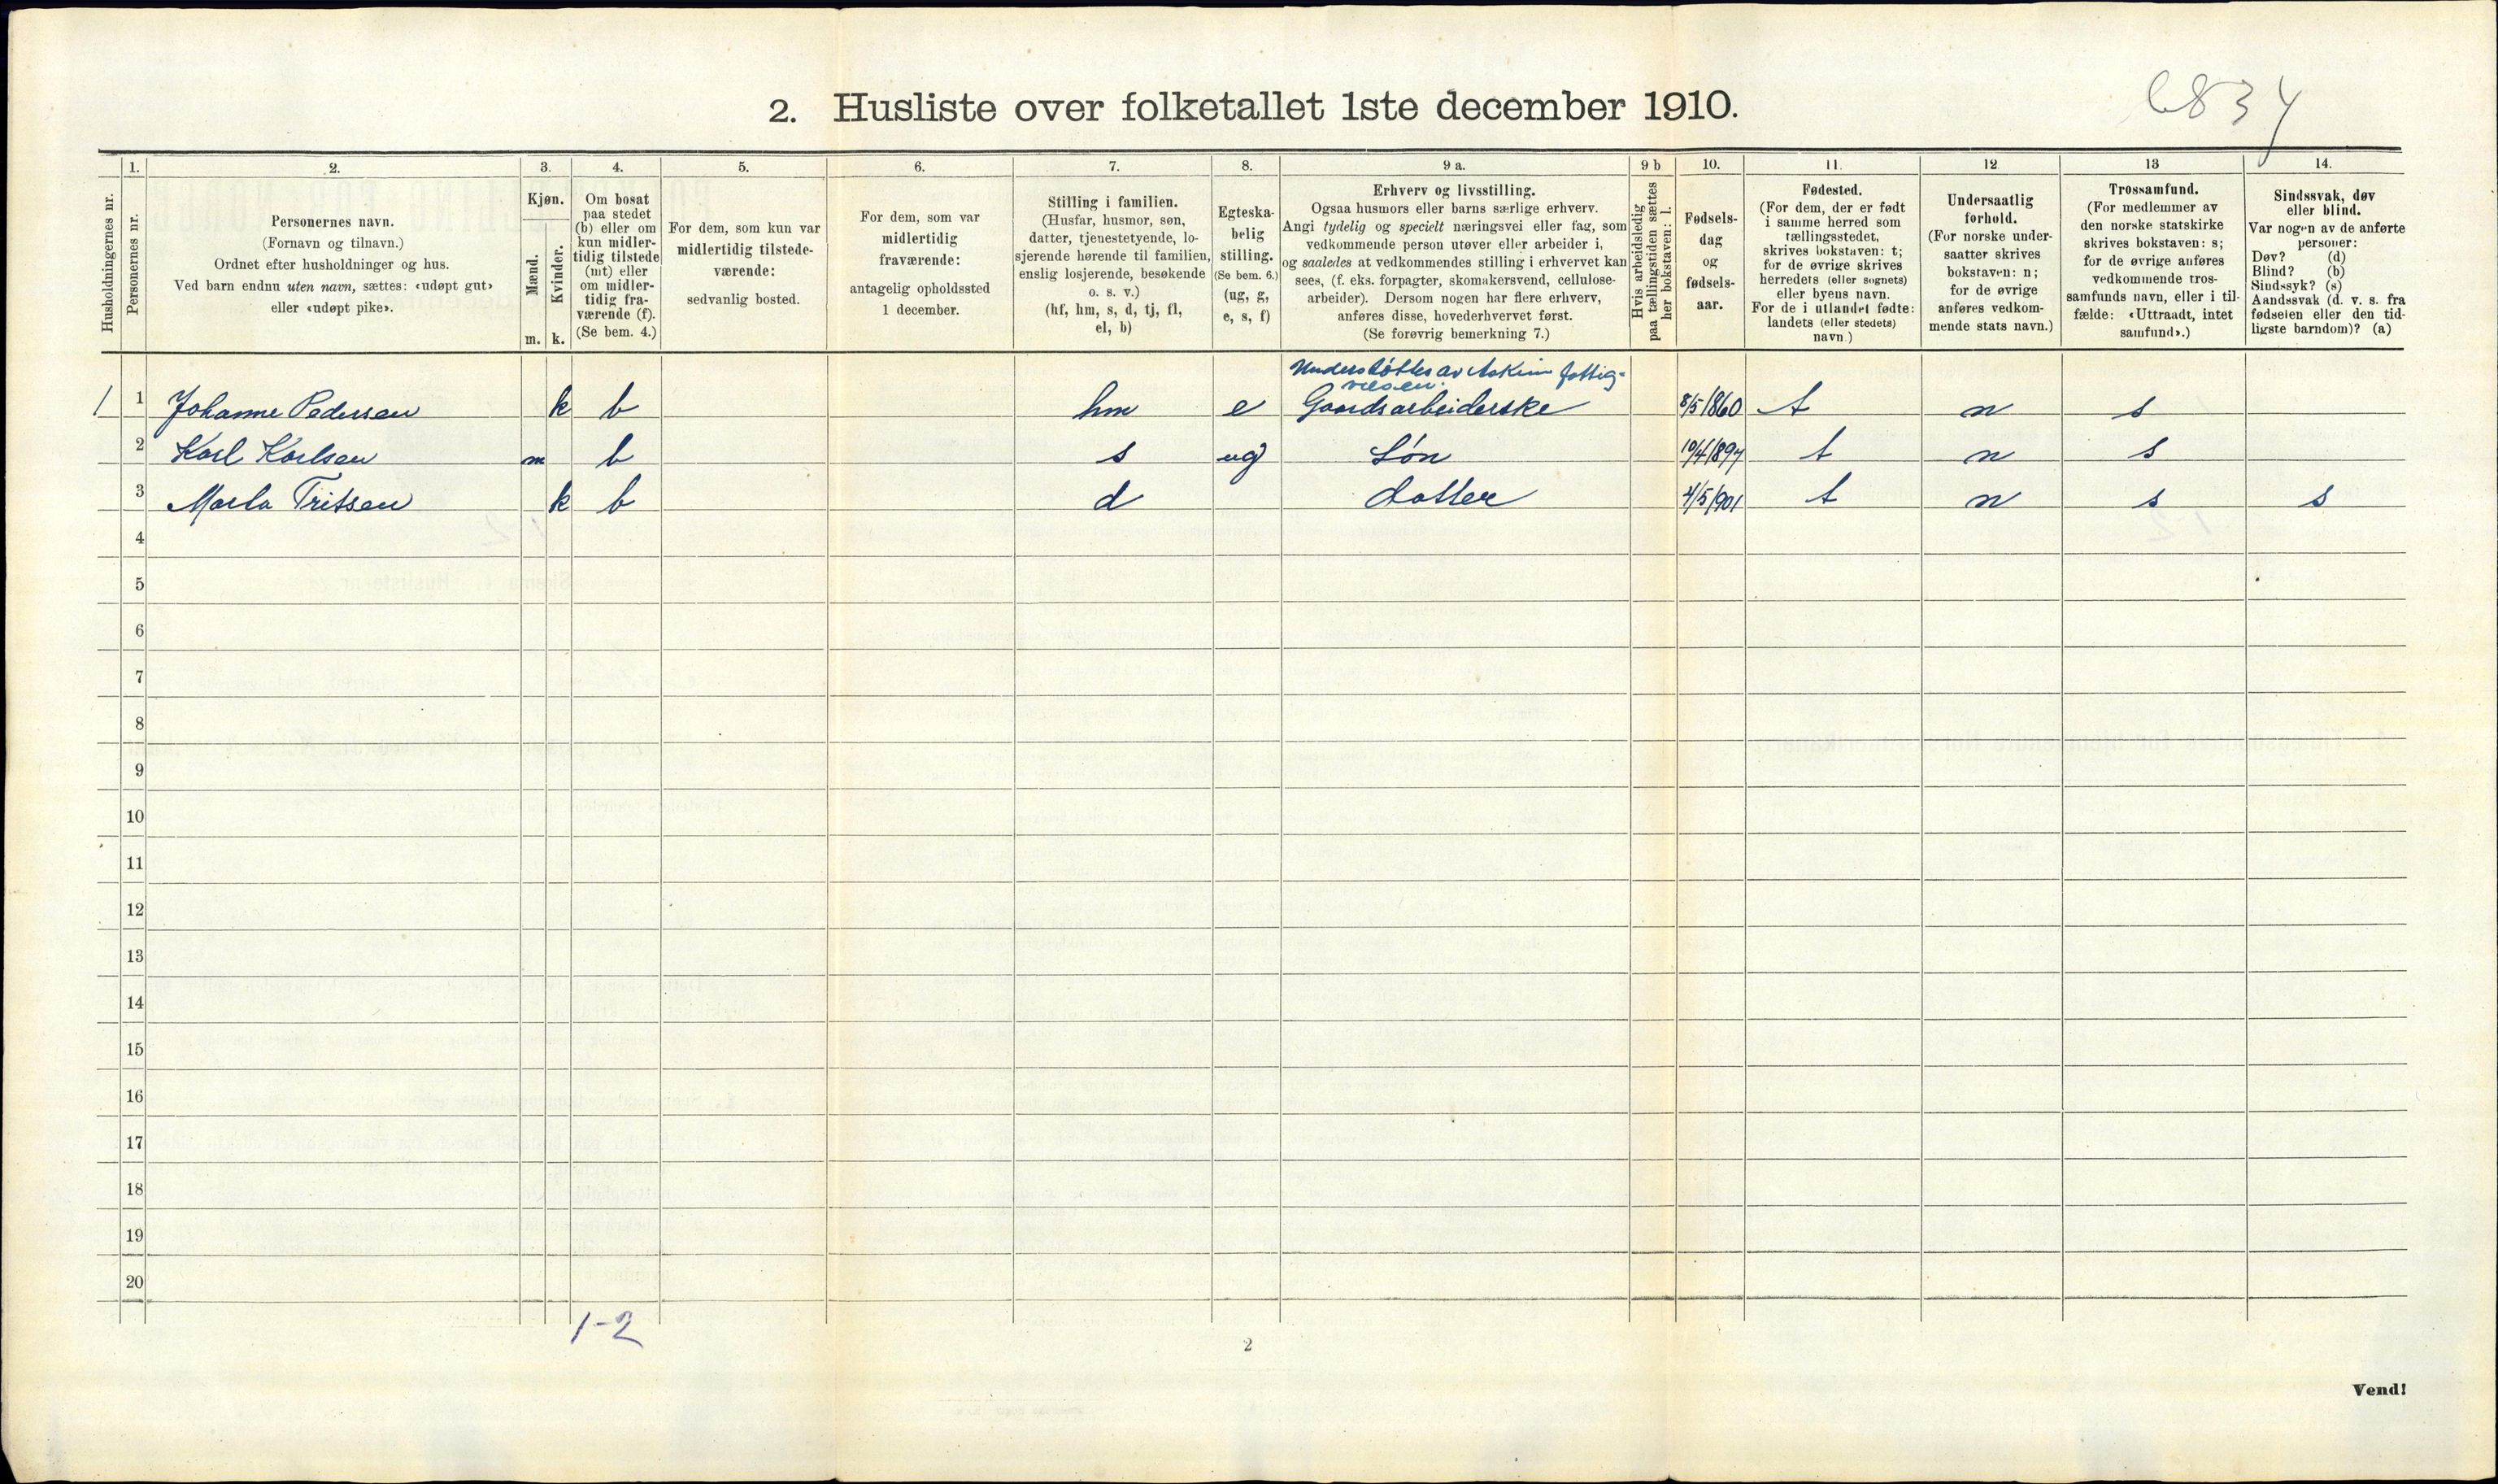 2. Husliste over folketallet 1ste december 1910.
6834
1. 2. 3. 4. 5. 6. 7. 8. 9 a. 9 b 10. 11. 12 13 14.
Husholdningernes nr.
Personernes nr.
Personernes navn.
(Fornavn og tilnavn.)
Ordnet efter husholdninger og hus.
Ved barn endnu uten navn, sættes: «udøpt gut»
eller «udøpt pike».
Kjøn.
Mænd.
Kvinder.
m. k.
Om bosat
paa stedet
(b) eller om
kun midler-
tidig tilstede
(mt) eller
om midler-
tidig fra-
værende (f).
(Se bem. 4.)
For dem, som kun var
midlertidig tilstede-
værende:
sedvanlig bosted.
For dem, som var
midlertidig
fraværende:
antagelig opholdssted
1 december.
Stilling i familien.
(Husfar, husmor, søn,
datter, tjenestetyende, lo-
sjerende hørende til familien,
enslig losjerende, besøkende
o. s. v.)
(hf, hm, s, d, tj, fl,
el, b)
Egteska-
belig
stilling.
(Se bem. 6.)
(ug, g,
e, s, f)
Erhverv og livsstilling.
Ogsaa husmors eller barns særlige erhverv.
Angi tydelig og specielt næringsvei eller fag, som
vedkommende person utøver eller arbeider i,
og saaledes at vedkommendes stilling i erhvervet kan
sees, (f. eks. forpagter, skomakersvend, cellulose-
arbeider). Dersom nogen har flere erhverv,
anføres disse, hovederhvervet først.
(Se forøvrig bemerkning 7.)
Hvis arbeidsledig
paa tællingstiden sættes
her bokstaven: l.
Fødsels-
dag
og
fødsels-
aar.
Fødested.
(For dem, der er født
i samme herred som
tællingsstedet,
skrives bokstaven: t;
for de øvrige skrives
herredets (eller sognets)
eller byens navn.
For de i utlandet fødte:
landets (eller stedets)
navn.)
Undersaatlig
forhold.
(For norske under-
saatter skrives
bokstaven: n;
for de øvrige
anføres vedkom-
mende stats navn.)
Trossamfund.
(For medlemmer av
den norske statskirke
skrives bokstaven: s;
for de øvrige anføres
vedkommende tros-
samfunds navn, eller i til-
fælde: «Uttraadt, intet
samfund».)
Sindssvak, døv
eller blind.
Var nogen av de anførte
personer:
Døv? (d)
Blind? (b)
Sindssyk? (s)
Aandssvak (d. v. s. fra
fødselen eller den tid-
ligste barndom)? (a)
Understøttes av Askim fattig-
væsen.
1 1 Johanne Pedersen k b hm e Gaardsarbeiderske 8/5 1860 t n s
2 Karl Karlsen m b s ug Søn 10/4 1897 t n s
3 Marta Fritsen k b d datter 4/5 1901 t n s s
4
5
6
7
8
9
10
11
12
13
14
15
16
17
18
19
20
1-2
2
Vend!